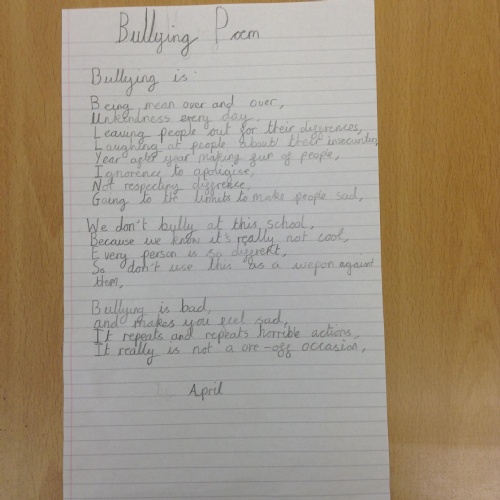 Bullying Poem
Bullying is:
Being mean over and over,
Unkindness every day,
Leaving people out for their differences,
Laughing at people about their insecurities
Year after year making fun of people,
Ignorence to apoligise,
Not respecting diffrence,
Going to the limits to make people sad,
We don't bully at this school,
Because we know it's really not cool,
Every person is so diffrent,
So don't use this as a wepon against
them,
Bullying is bad,
and makes you feel sad,
It repeats and repeats horrible actions,
It really is not a one-off occasion,
April